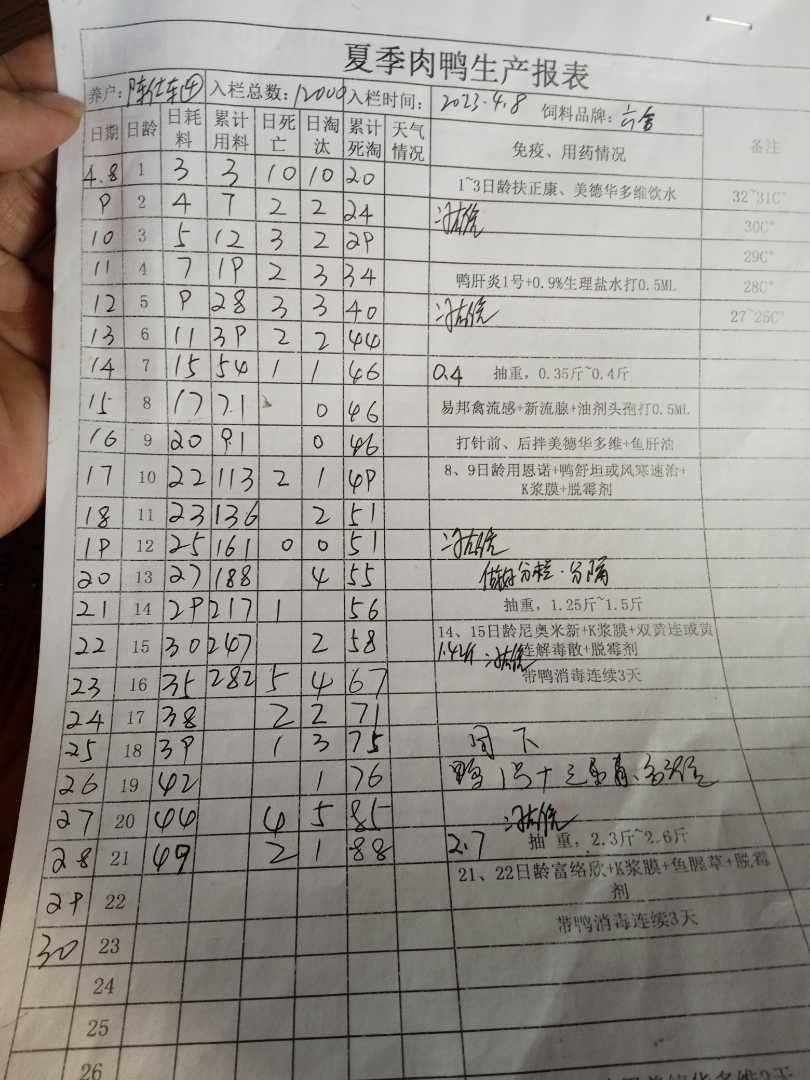 夏季肉鸭生产报表
养户: 入栏总数: 12000 入栏时间: 2023.4.8 饲料品牌: 六舍
日期 日龄 日耗料 累计用料 日死亡 日淘汰 累计死淘 天气情况 免疫、用药情况 备注
4.8 1 3 3 10 10 20 1~3日龄扶正康、美德华多维饮水 32~31C°
9 2 4 7 2 2 24 30C°
10 3 5 12 3 2 29 29C°
11 4 7 19 2 3 34 鸭肝炎1号+0.9%生理盐水打0.5ML 28C°
12 5 9 28 3 3 40 27~25C°
13 6 11 39 2 2 44
14 7 15 54 1 1 46 0.4 抽重，0.35斤~0.4斤
15 8 17 71 0 46 易邦禽流感+新流腺+油剂头孢打0.5ML
16 9 20 91 0 46 打针前、后拌美德华多维+鱼肝油
17 10 22 113 2 1 49 8、9日龄用恩诺+鸭舒坦或风寒速治+K浆膜+脱霉剂
18 11 23 136 2 51
19 12 25 161 0 0 51
20 13 27 188 4 55 做好分栏.分隔
21 14 29 217 1 56 抽重，1.25斤~1.5斤
22 15 30 247 2 58 14、15日龄尼奥米新+K浆膜+双黄连或黄连解毒散+脱霉剂
1.42斤
23 16 35 282 5 4 67 带鸭消毒连续3天
24 17 38 2 2 71
25 18 39 1 3 75
26 19 42 1 76 鸭 1号+
27 20 44 4 5 85
28 21 49 2 1 88 2.7 抽 重，2.3斤~2.6斤
29 22 21、22日龄富络欣+K浆膜+鱼腥草+脱霉剂
30 23 带鸭消毒连续3天
24
25
26